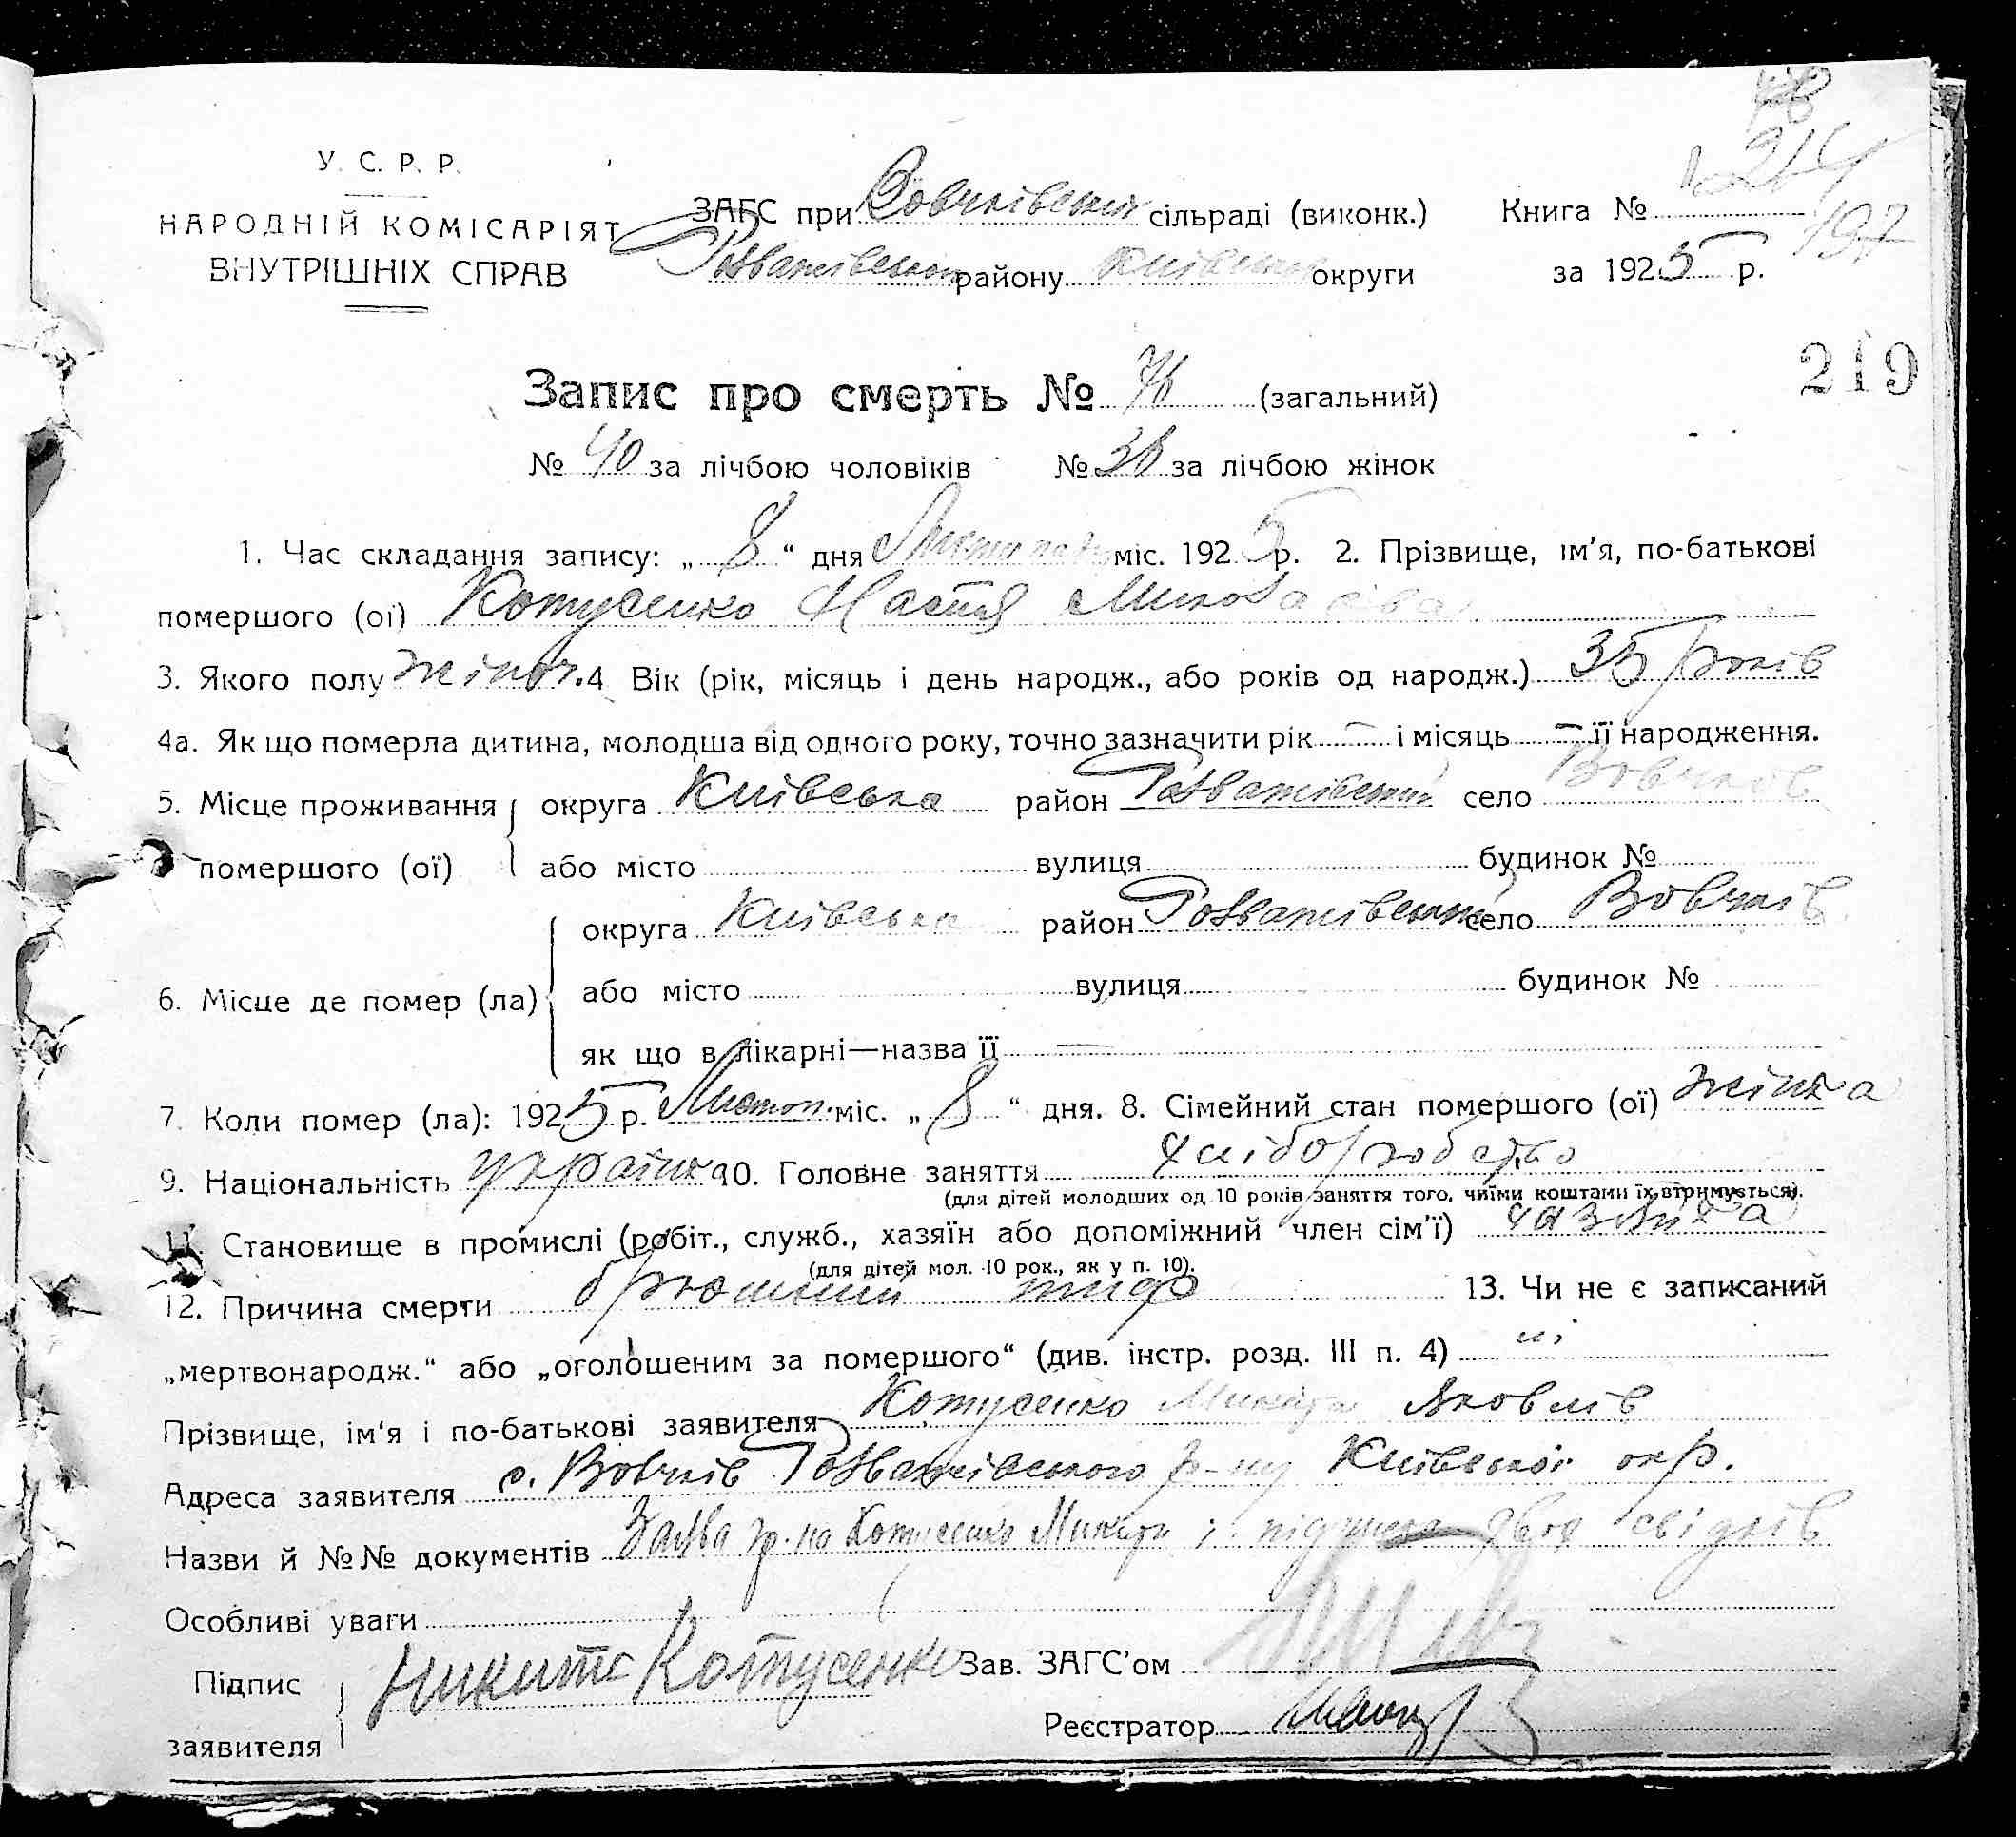 219
У. С. Р. Р.
НАРОДНІЙ КОМІСАРІЯТ
ВНУТРІШНІХ СПРАВ
ЗАГС при Вовчківській сільраді (виконк.) Книга №
Розважівського району Київської округи за 1925 р.
Запис про смерть № 76 (загальний)
№ 40 за лічбою чоловіків № 36 за лічбою жінок
1. Час складання запису: „ 8 “ дня Листопада міс. 1925 р. 2. Прізвище, ім’я, по-батькові
помершого (ої) Котусенко Настя
3. Якого полу жіноч. 4 Вік (рік, місяць і день народж., або років од народж.) 35 років
4а. Як що померла дитина, молодша від одного року, точно зазначити рік — і місяць — її народження.
5. Місце проживання округа Київська район Розважівський село Вовчків
помершого (ої) або місто вулиця будинок №
округа Київська район Розважівський село Вовчків
6. Місце де помер (ла) або місто вулиця будинок №
як що в лікарні—назва її —
7. Коли помер (ла): 1925 р. Листоп. міс. „ 8 “ дня. 8. Сімейний стан помершого (ої) жінка
9. Національність україн. 10. Головне заняття хліборобство
(для дітей молодших од 10 років заняття того, чиїми коштами їх втримується).
11. Становище в промислі (робіт., служб., хазяїн або допоміжний член сім’ї) хазяйка
(для дітей мол. 10 рок., як у п. 10).
12. Причина смерти брюшний тиф 13. Чи не є записаний
„мертвонародж.“ або „оголошеним за помершого“ (див. інстр. розд. III п. 4) ні
Прізвище, ім‘я і по-батькові заявителя Котусенко Микита Яковлів
Адреса заявителя с. Вовчків Розважівського р-ну Київської окр.
Назви й №№ документів Заява гр-на Котусенка Микити і підписи двох свідків
Особливі уваги
Підпис Никита Котусенко Зав. ЗАГС’ом
заявителя Реєстратор